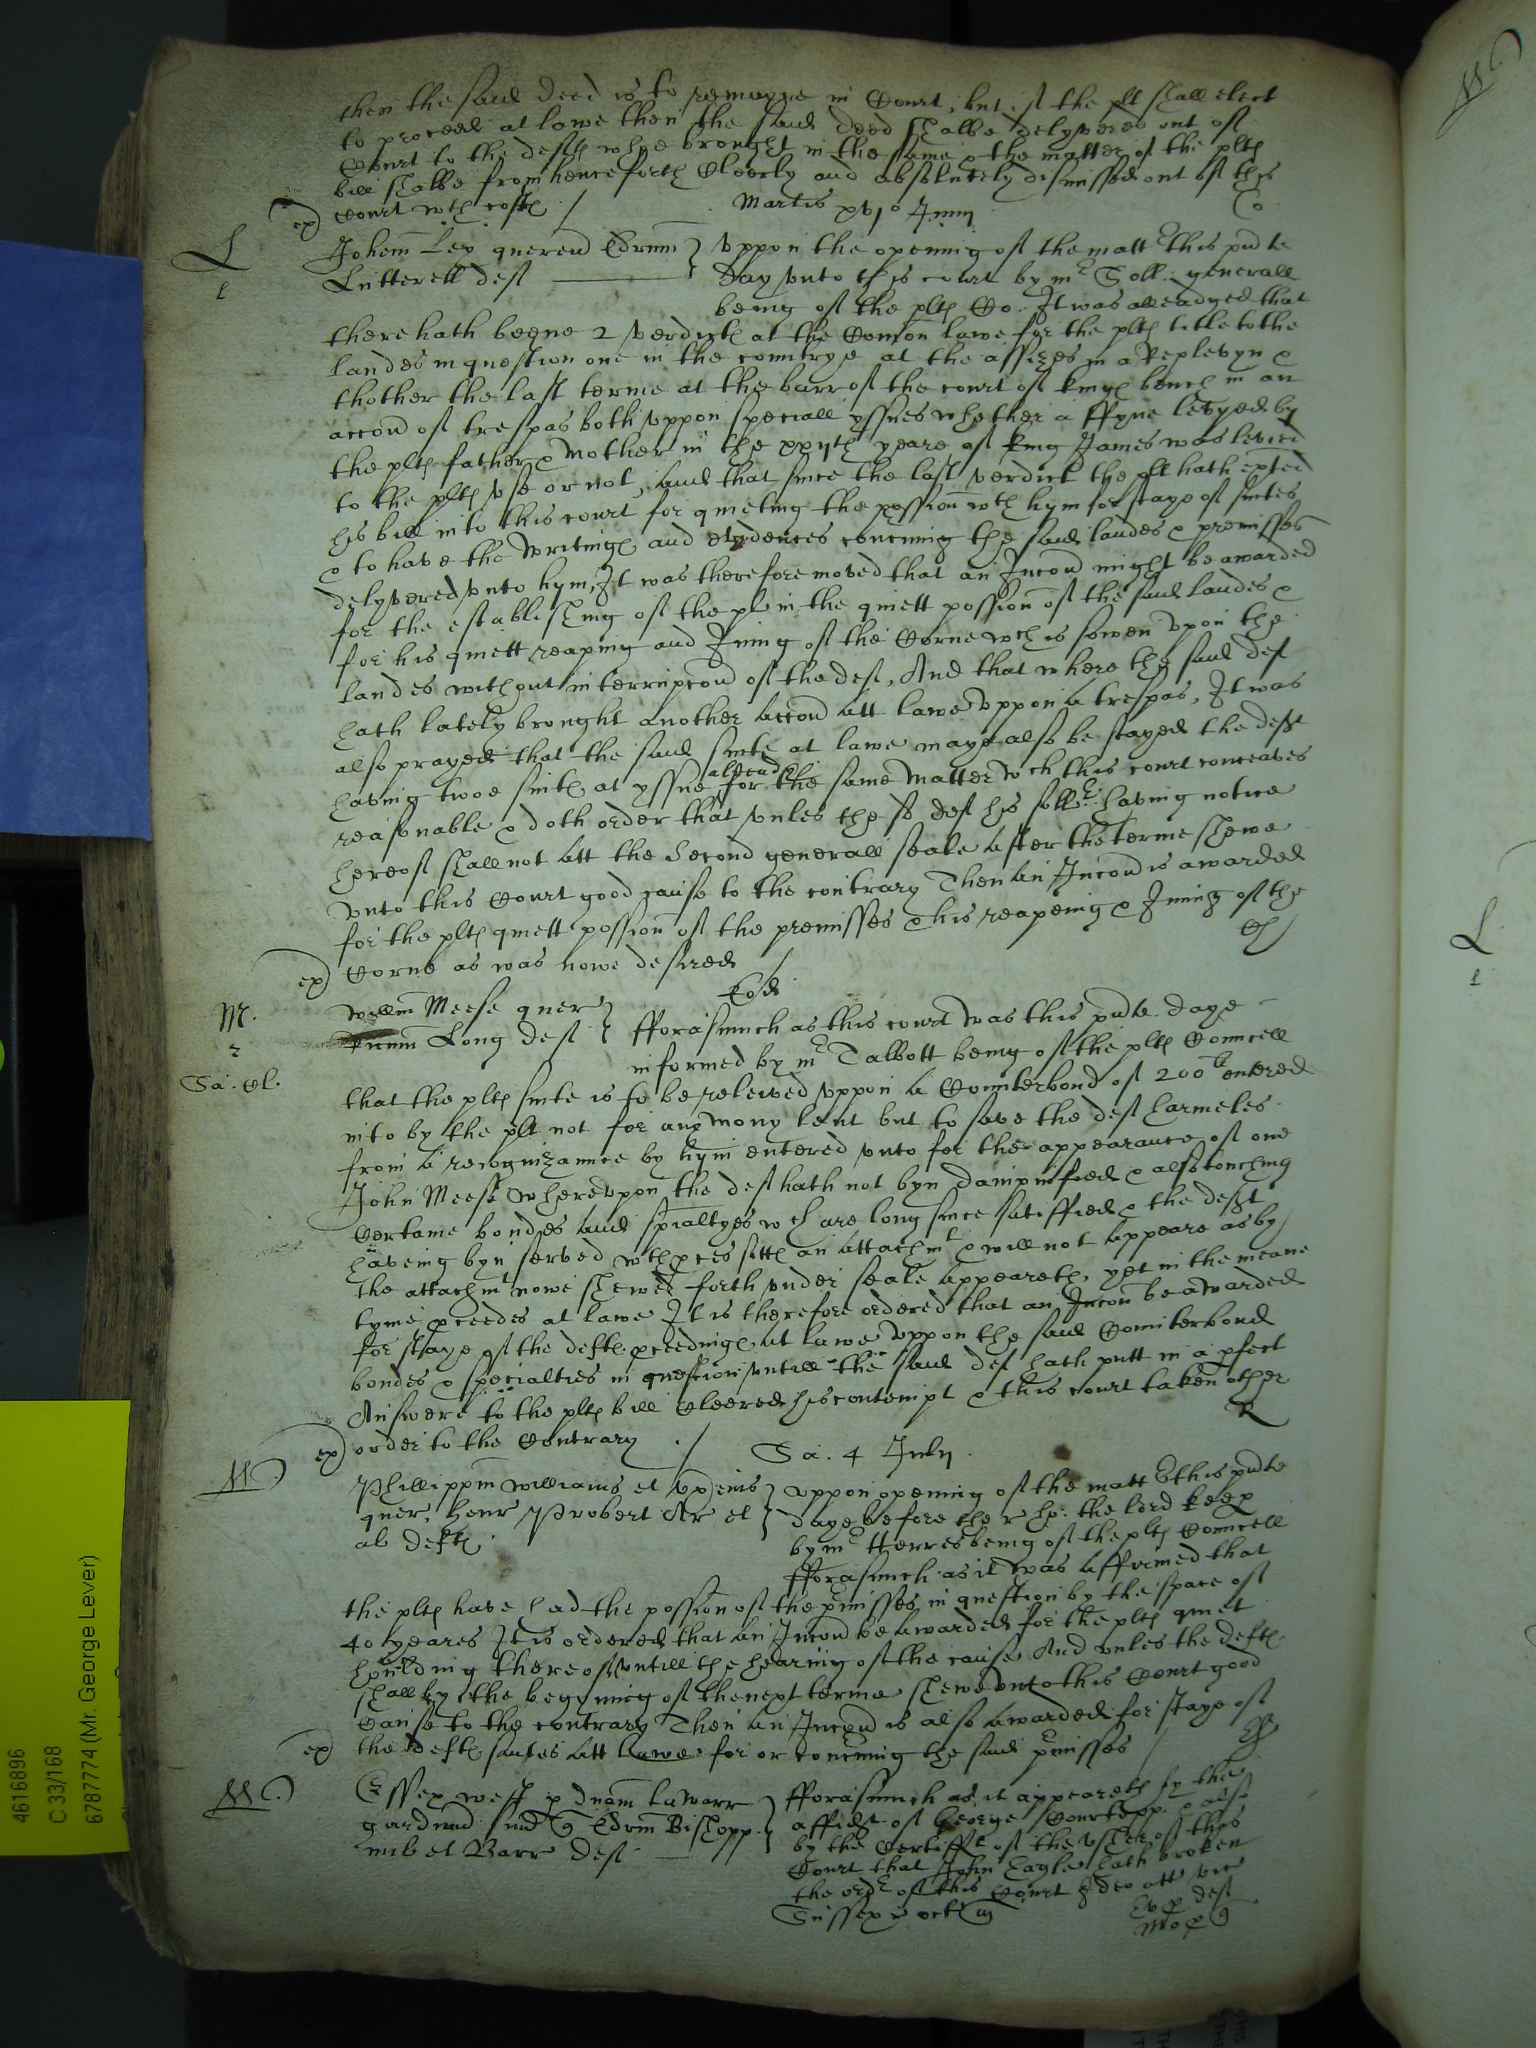 then the said deed is to remayne in Court, but if the plt shall elect
to proceed at lawe then the said deed shalbe delyvered out of
Court to the deftes whoe brought in the same & the matter of the pltes
bill shalbe from henceforth Cleerly and absolutely dismissed out of this
ex) Court wth costes /
Martis xvjo Junii
Co
L
Johem Ley queren Edrum
Lutterell def
Uppon the opening of the mattr this pnte
day unto this court by mr Soll: generall
being of the pltes Co: It was alleadged that
there hath beene 2 verdictes at the Comon lawe for the pltes title to the
landes in question one in the countrye at the assizes in a Replevyn &
thother the last terme at the barr of the court of kinges bench in an
accon of trespas both uppon speciall yssues whether a ffyne levyed by
the pltes father & mother in the yeare of king James was levied
to the pltes use or not, and that since the last verdict the plt hath exhted
his bill into this court for quieting the possion wth hym for staye of suites
& to have the writinges and evidences concrning the said landes & premisses
delyvered unto hym, It was therefore moved that an Iniuncon might be awarded
for the establishing of the pl in the quiett possion of the said landes &
for his quiett reaping and Inning of the Corne wch is sowen upon the
landes without interrupcon of the def, And that where the said def
hath lately brought another accon att lawe uppon a trespas, It was
also prayed that the said suite at lawe maye also be stayed the deft
having twoe suites at yssue already for the same matter wch this court conceaves
reasonable & doth order that unles the sd def his sollr having notice
hereof shall not att the second generall seale after the terme shewe
unto this Court good cause to the contrary Then an Iniuncon is awarded
for the pltes quiett possion of the premisses & his reapeing & Inning of the
ex) Corne as was nowe desired /
M.
2
Sa. el.
Willm Meese quer
Long def
Eod
fforasmuch as this court was this pnte daye
informed by mr Talbott being of the pltes Councell
that the pltes suite is to be releived uppon a Counterbond of 200li entered
into by the plt not for any mony lent but to save the def harmeles
from a recognizaunce by hym entered unto for the appearance of one
John Meese whereupon the def hath not byn dampnified & also touching
Certaine bondes and spialtyes wch are long since satisfied & the deft
haveing byn served wth proces sitts an attachmt & will not appeare as by
the attachmt nowe shewed forth under seale appeareth, yet in the meane
tyme proceedes at lawe It is therefore ordered that an Iniuncon be awarded
for staye of the deftes proceedinges at lawe uppon the said Counterbond
bondes & specialties in question untill the said def hath putt in a pfect
Answere to the pltes bill Cleered his contempt & this court taken other
ex) order to the Contrary ./
R
Sa. 4 July
W
Phillippm Williams et uxem
quer, Henr Probert Ar et
al deftes
Uppon opening of the mattr this pnte
daye before the r ho: the lord keep
by mr Herres being of the pltes Councell
fforasmuch as it was affirmed that
the pltes have had the possion of the prmisses in question by the space of
40 yeares It is ordered that an Iniuncon be awarded for the pltes quiet
houlding thereof untill the hearing of the cause And unles the deftes
shall by the beginning of the next terme shewe unto this Court good
Cause to the contrary Then an Iniuncon is also awarded for staye of
ex) the deftes suites att lawe for or concrning the said prmisses /
W
Essex west p dnam Lawarr
Edrum Bishopp
mil et Barr def
fforasmuch as it appeareth by the
affidt of George & also
by the Certifft of the usher of this
Court that John Eagle hath broken
the ordr of this Court Ideo att vic
Sussex
4616896
C 33/168
6787774 (Mr. George Lever)